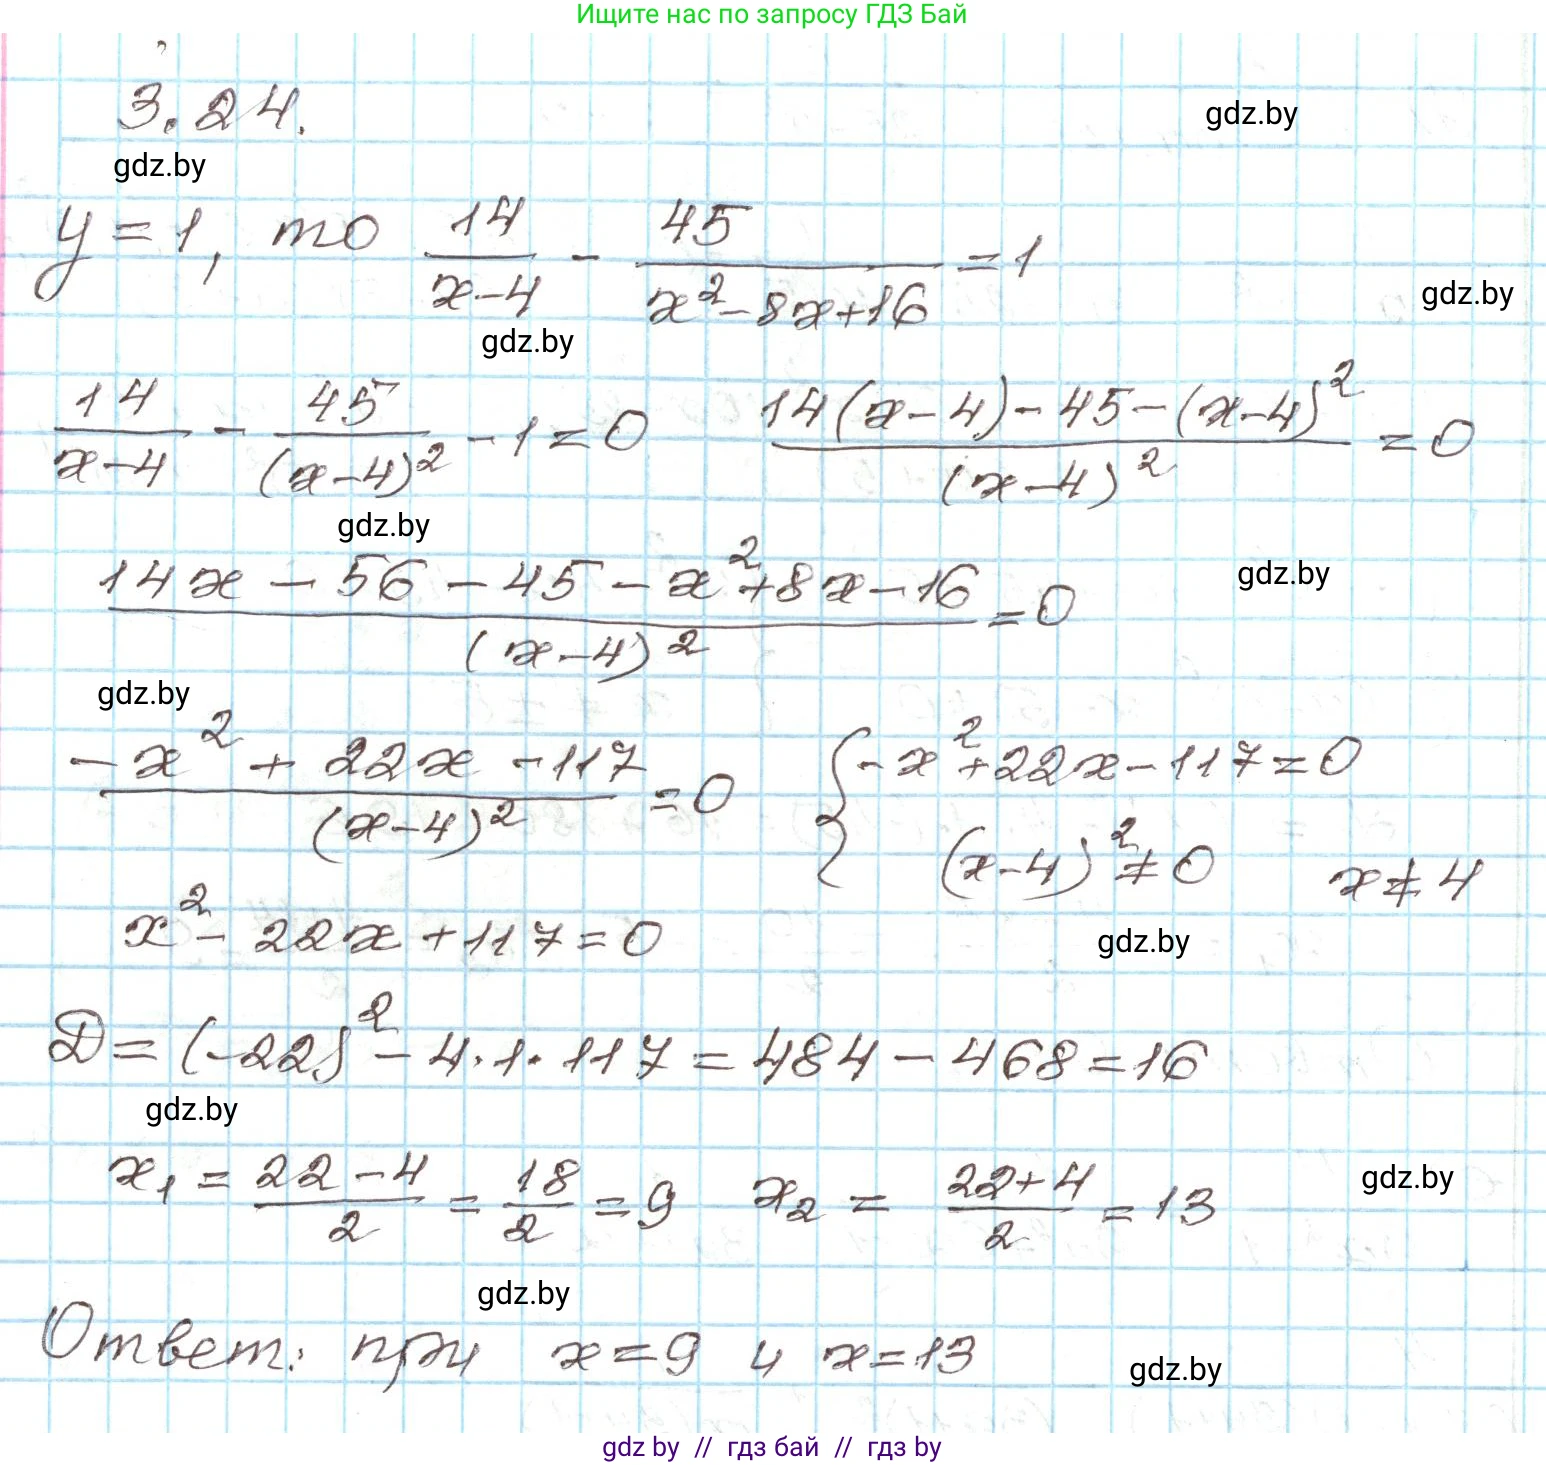 Ищите нас по запросу ГДЗ Бай
3.24.
gdz.by
gdz.by
y = 1, то 14/(x-4) - 45/(x²-8x+16) = 1
gdz.by
gdz.by
14/(x-4) - 45/(x-4)² - 1 = 0    (14(x-4) - 45 - (x-4)²)/(x-4)² = 0
gdz.by
(14x - 56 - 45 - x² + 8x - 16)/(x-4)² = 0
gdz.by
gdz.by
(-x² + 22x - 117)/(x-4)² = 0    { -x² + 22x - 117 = 0
(x-4)² ≠ 0    x ≠ 4
x² - 22x + 117 = 0
gdz.by
D = (-22)² - 4·1·117 = 484 - 468 = 16
gdz.by
x₁ = (22-4)/2 = 18/2 = 9    x₂ = (22+4)/2 = 13
gdz.by
gdz.by
Ответ: при x = 9 и x = 13
gdz.by
gdz by // гдз бай // гдз by